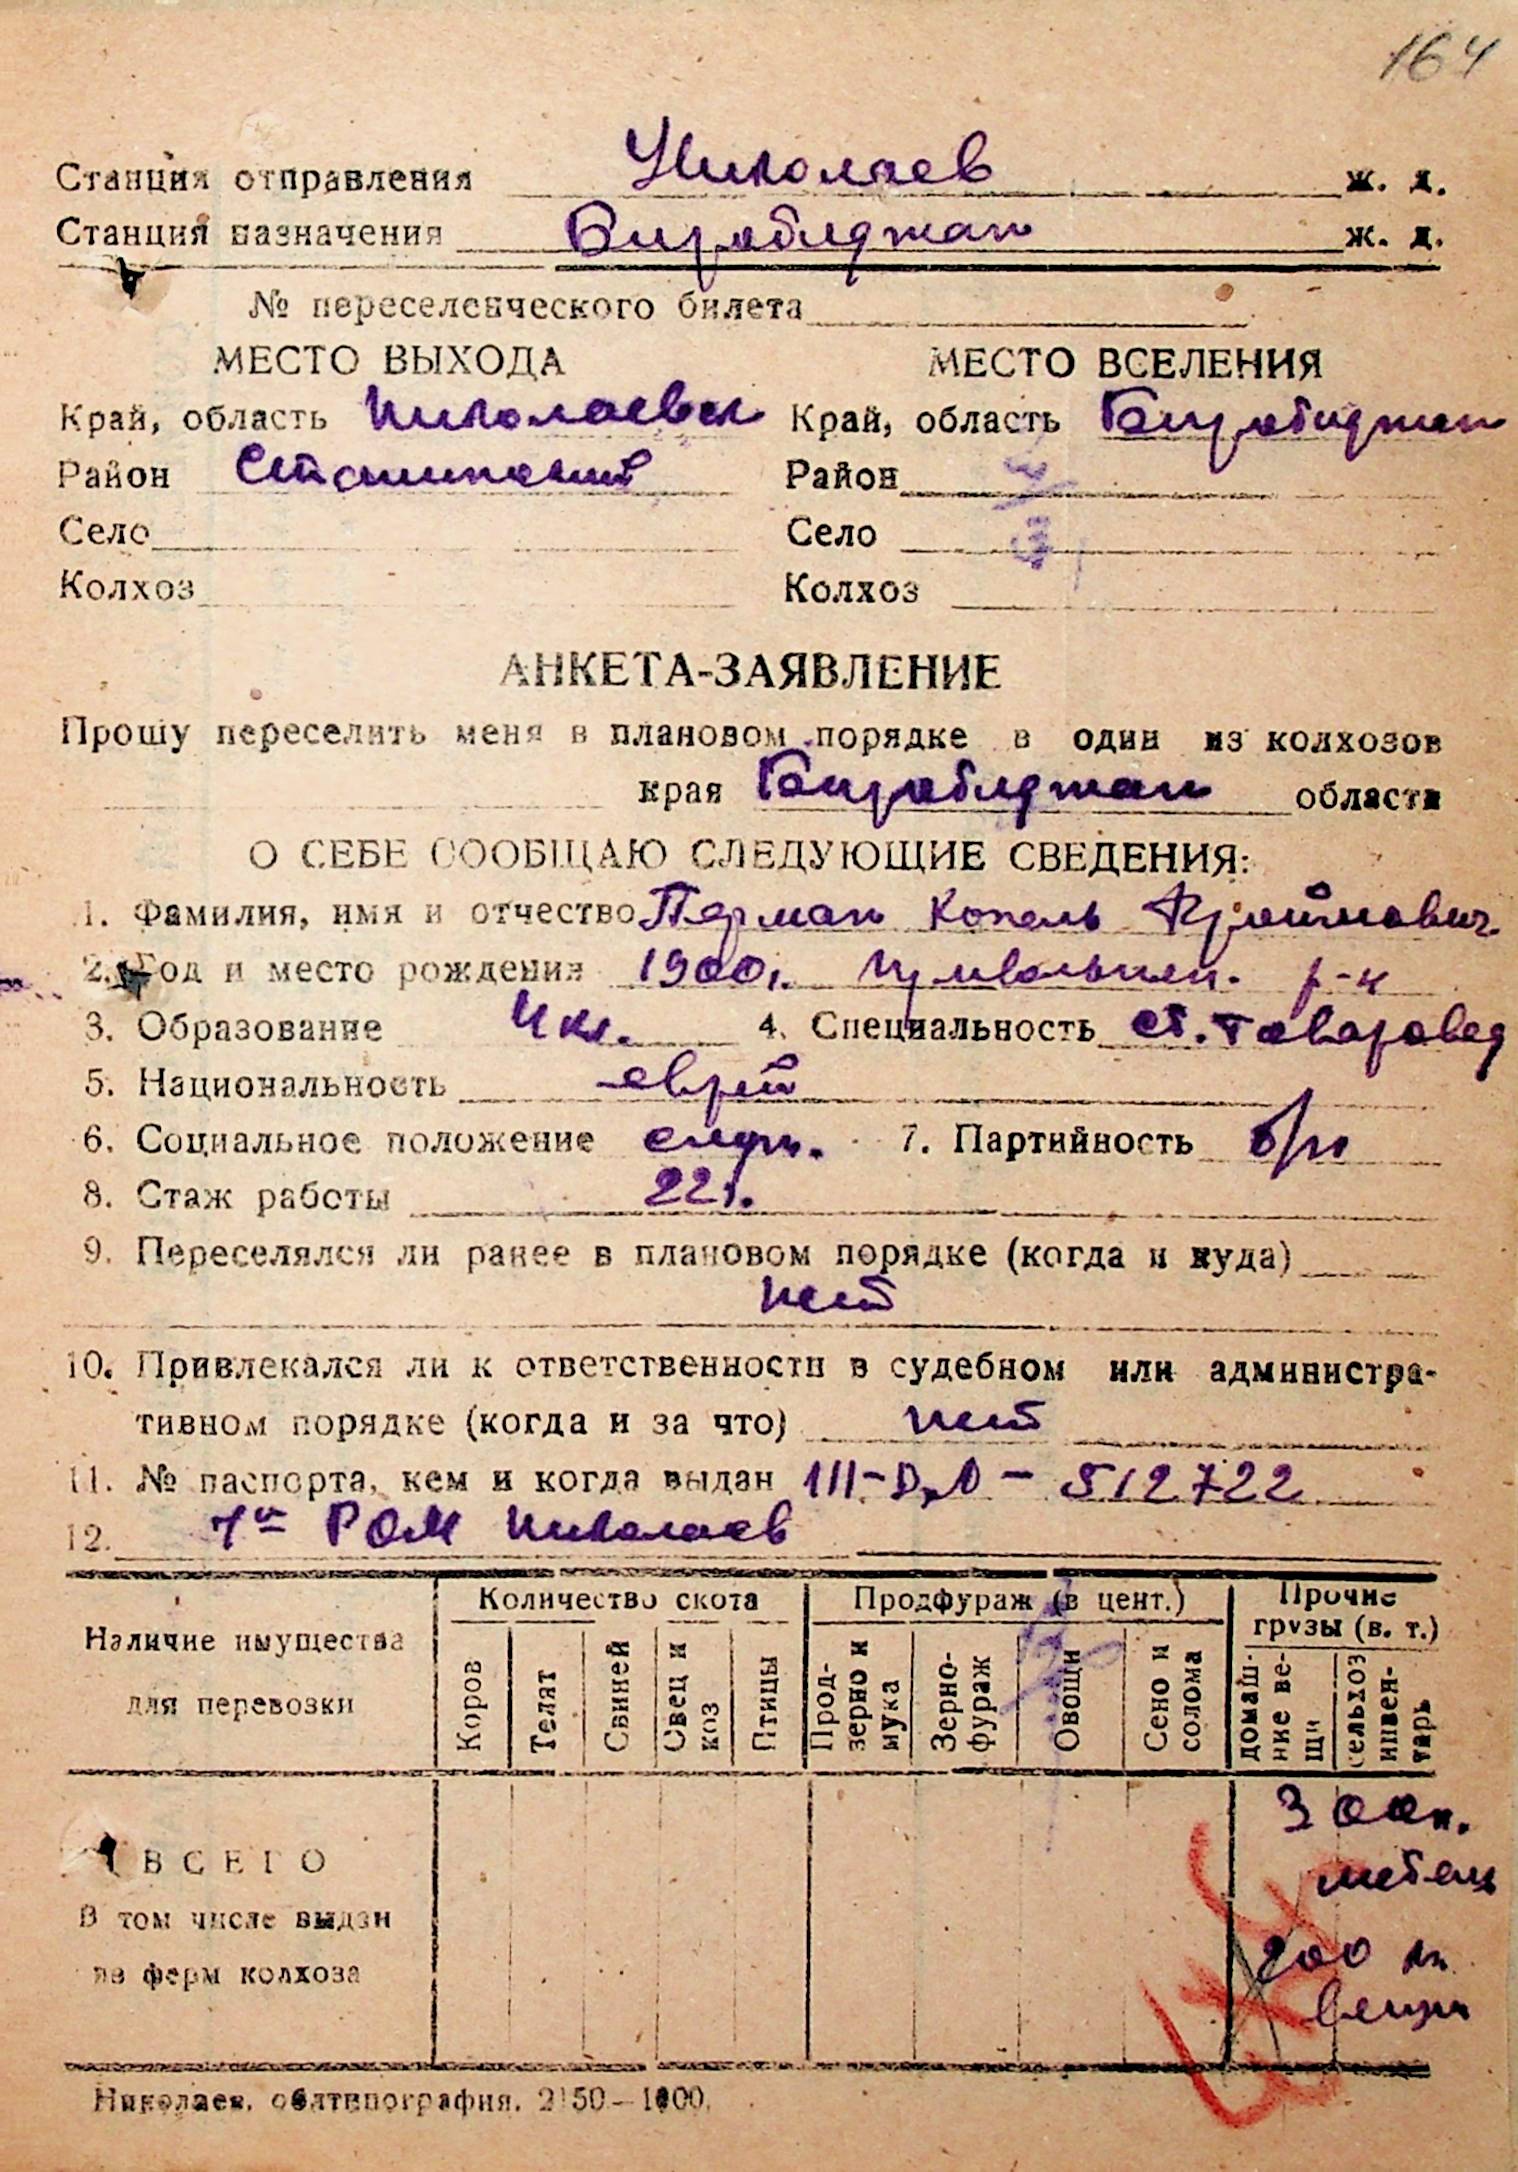 164
Станция отправления Николаев ж. д.
Станция назначения Биробиджан ж. д.
№ переселенческого билета
МЕСТО ВЫХОДА МЕСТО ВСЕЛЕНИЯ
Край, область Николаевск Край, область Биробиджан
Район Сталинский Район
Село Село
Колхоз Колхоз
АНКЕТА-ЗАЯВЛЕНИЕ
Прошу переселить меня в плановом порядке в один из колхозов
края Биробиджан области
О СЕБЕ СООБЩАЮ СЛЕДУЮЩИЕ СВЕДЕНИЯ:
1. Фамилия, имя и отчество Перман Копель
2. Год и место рождения 1900г. р-н
3. Образование 4 кл. 4. Специальность ст. товаровед
5. Национальность еврей
6. Социальное положение служ. 7. Партийность б/п
8. Стаж работы 22 г.
9. Переселялся ли ранее в плановом порядке (когда и куда)
нет
10. Привлекался ли к ответственности в судебном или администра-
тивном порядке (когда и за что) нет
11. № паспорта, кем и когда выдан 512722
12. РОМ Николаев
Наличие имущества для перевозки
Количество скота
Коров Телят Свиней Овец и коз Птицы
Продфураж (в цент.)
Прод-зерно и мука Зерно-фураж Овощи Сено и солома
Прочие грузы (в. т.)
домаш-ние ве-щи сельхоз инвен-тарь
ВСЕГО
В том числе выдан
из ферм колхоза
300 к.
мебель
200 кг
вещи
Николаев, облтипография. 2150—1000.